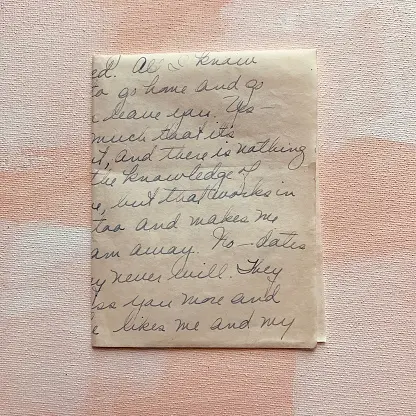 ed. All I know
to go home and go
leave you. Yes –
much that it's
t, and there is nothing
the knowledge of
e, but that works in
too and makes me
am away. No – dates
y never will. They
ss you more and
e likes me and my